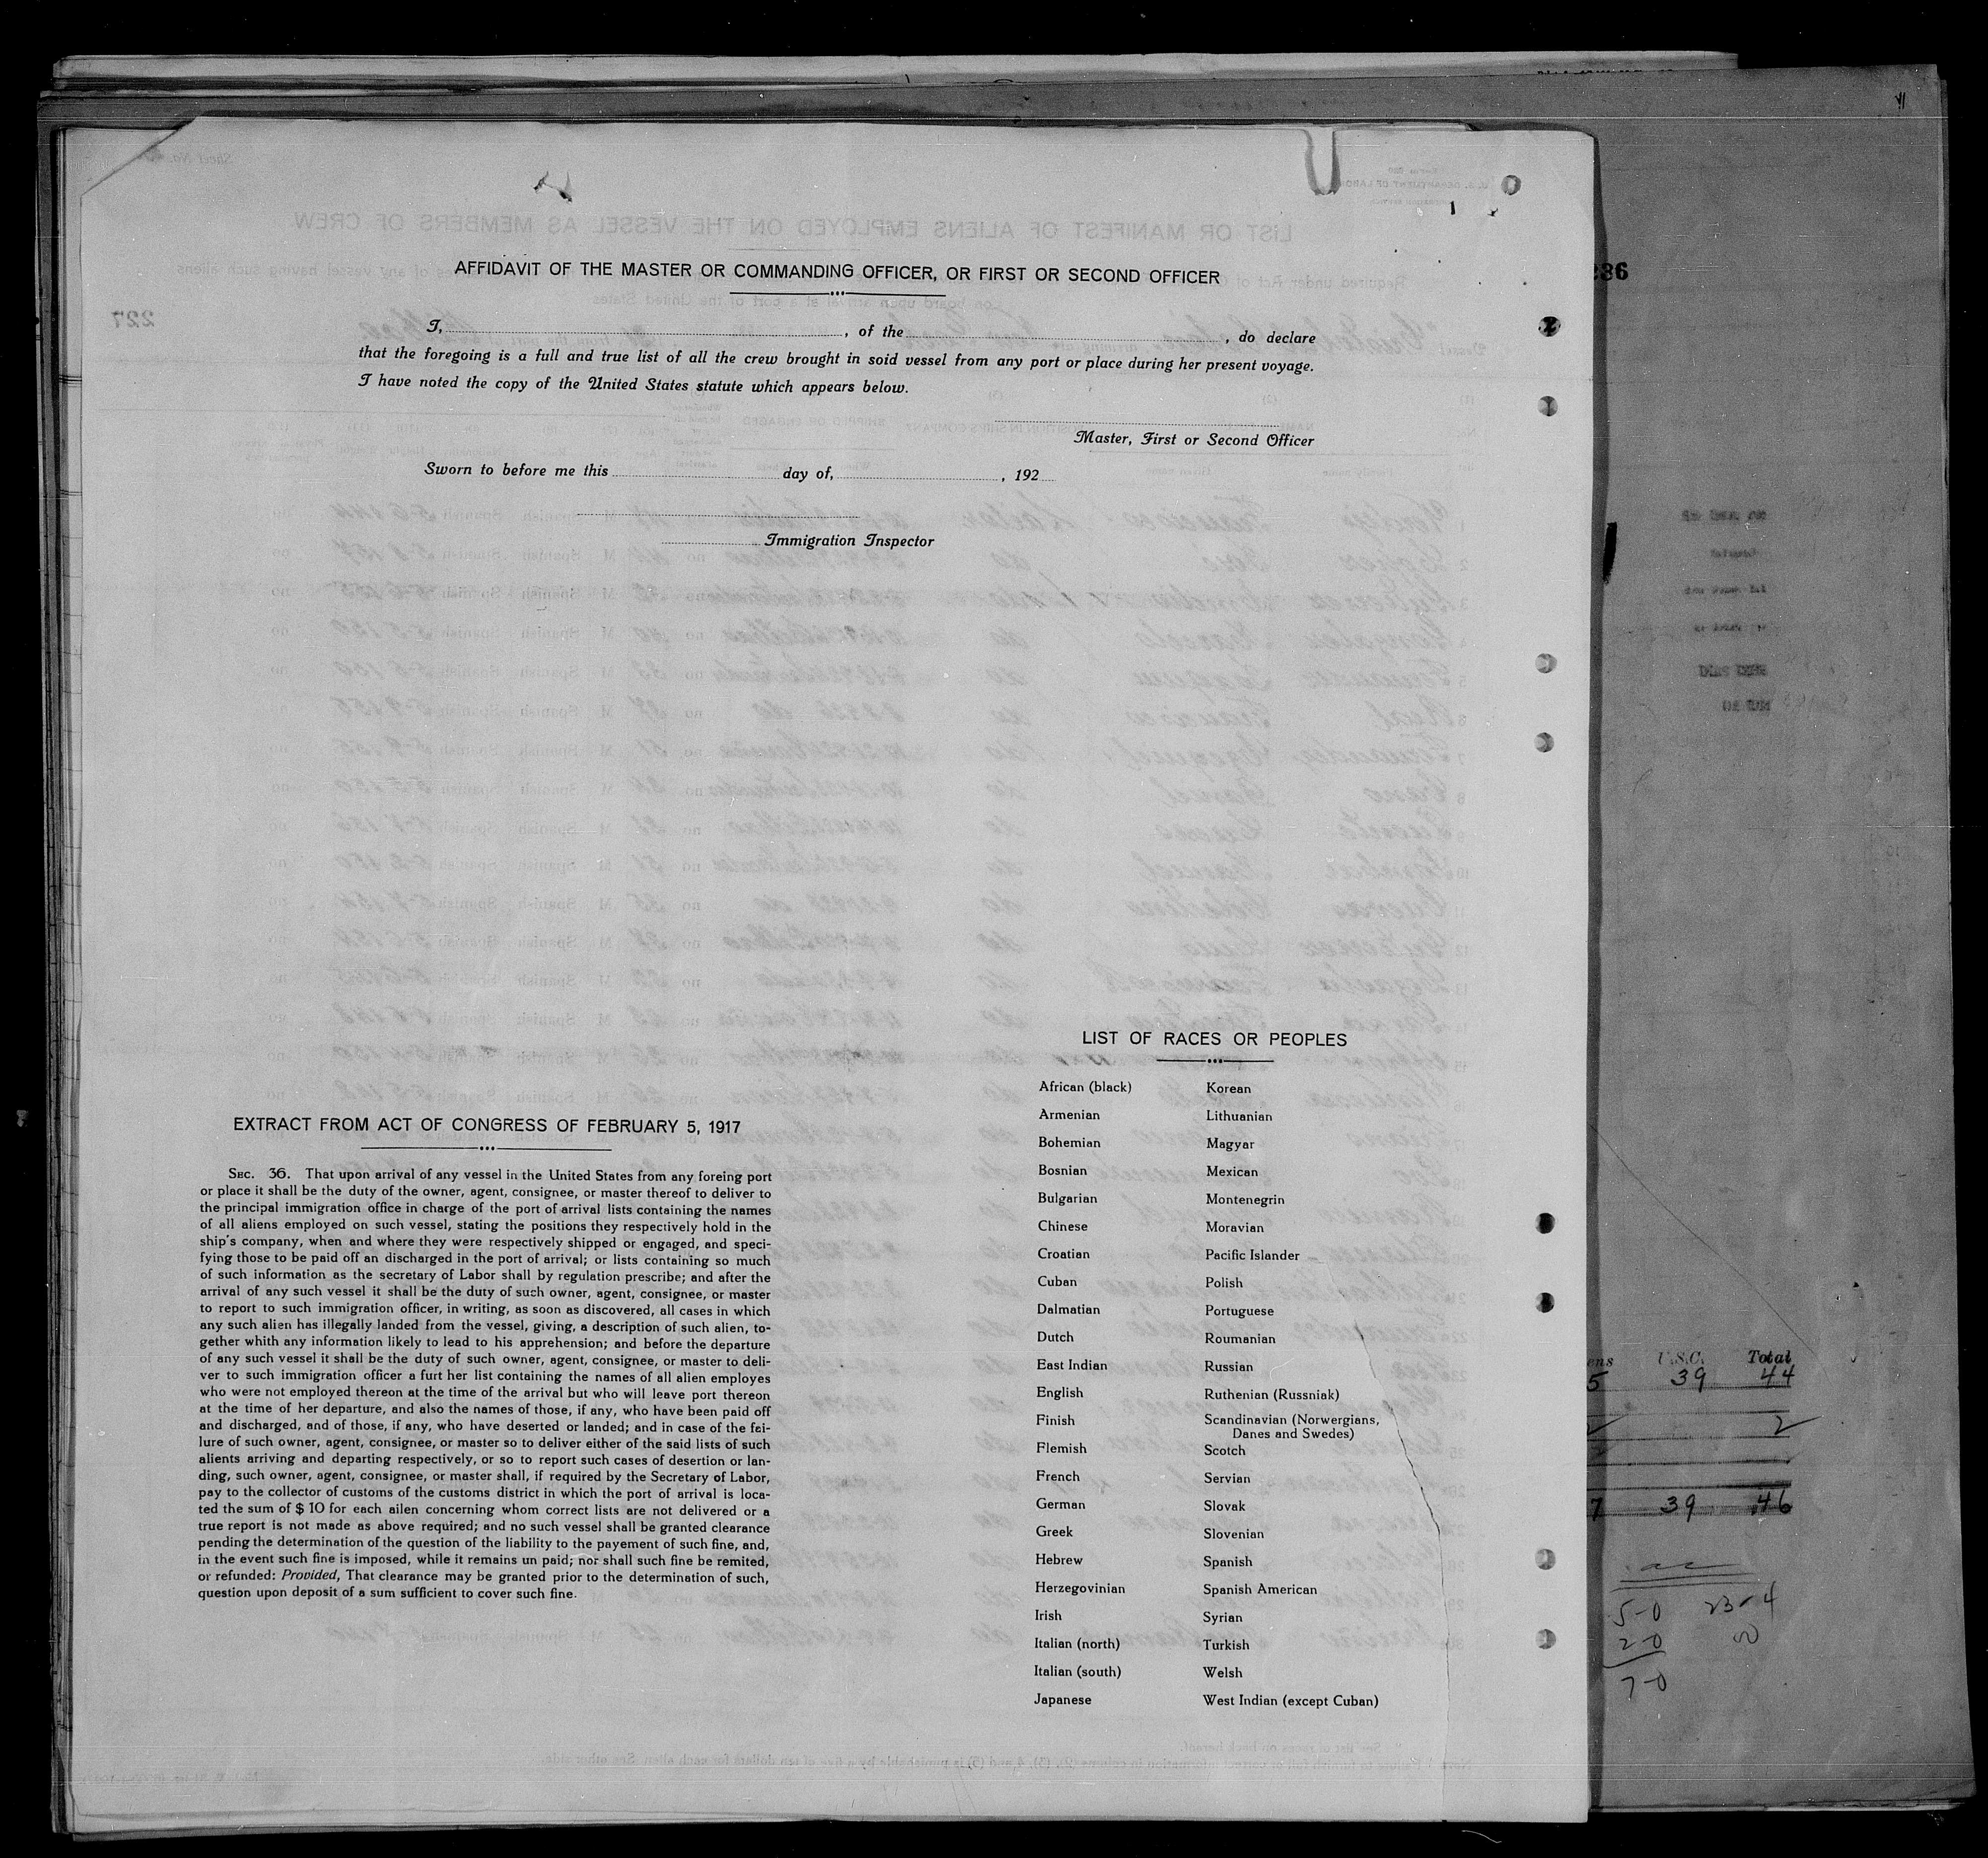 AFFIDAVIT OF THE MASTER OR COMMANDING OFFICER, OR FIRST OR SECOND OFFICER
I, , of the , do declare
that the foregoing is a full and true list of all the crew brought in soid vessel from any port or place during her present voyage.
I have noted the copy of the United States statute which appears below.
Master, First or Second Officer
Sworn to before me this day of, , 192
Immigration Inspector
EXTRACT FROM ACT OF CONGRESS OF FEBRUARY 5, 1917
SEC. 36. That upon arrival of any vessel in the United States from any foreing port
or place it shall be the duty of the owner, agent, consignee, or master thereof to deliver to
the principal immigration office in charge of the port of arrival lists containing the names
of all aliens employed on such vessel, stating the positions they respectively hold in the
ship's company, when and where they were respectively shipped or engaged, and speci-
fying those to be paid off an discharged in the port of arrival; or lists containing so much
of such information as the secretary of Labor shall by regulation prescribe; and after the
arrival of any such vessel it shall be the duty of such owner, agent, consignee, or master
to report to such immigration officer, in writing, as soon as discovered, all cases in which
any such alien has illegally landed from the vessel, giving, a description of such alien, to-
gether whith any information likely to lead to his apprehension; and before the departure
of any such vessel it shall be the duty of such owner, agent, consignee, or master to deli-
ver to such immigration officer a furt her list containing the names of all alien employes
who were not employed thereon at the time of the arrival but who will leave port thereon
at the time of her departure, and also the names of those, if any, who have been paid off
and discharged, and of those, if any, who have deserted or landed; and in case of the fei-
lure of such owner, agent, consignee, or master so to deliver either of the said lists of such
alients arriving and departing respectively, or so to report such cases of desertion or lan-
ding, such owner, agent, consignee, or master shall, if required by the Secretary of Labor,
pay to the collector of customs of the customs district in which the port of arrival is loca-
ted the sum of $ 10 for each ailen concerning whom correct lists are not delivered or a
true report is not made as above required; and no such vessel shall be granted clearance
pending the determination of the question of the liability to the payement of such fine, and,
in the event such fine is imposed, while it remains un paid; nor shall such fine be remited,
or refunded: Provided, That clearance may be granted prior to the determination of such,
question upon deposit of a sum sufficient to cover such fine.
LIST OF RACES OR PEOPLES
African (black)
Armenian
Bohemian
Bosnian
Bulgarian
Chinese
Croatian
Cuban
Dalmatian
Dutch
East Indian
English
Finish
Flemish
French
German
Greek
Hebrew
Herzegovinian
Irish
Italian (north)
Italian (south)
Japanese
Korean
Lithuanian
Magyar
Mexican
Montenegrin
Moravian
Pacific Islander
Polish
Portuguese
Roumanian
Russian
Ruthenian (Russniak)
Scandinavian (Norwergians,
Danes and Swedes)
Scotch
Servian
Slovak
Slovenian
Spanish
Spanish American
Syrian
Turkish
Welsh
West Indian (except Cuban)
U.S.C. Total
5 39 44
2
7 39 46
5-0 23-4
2-0
7-0